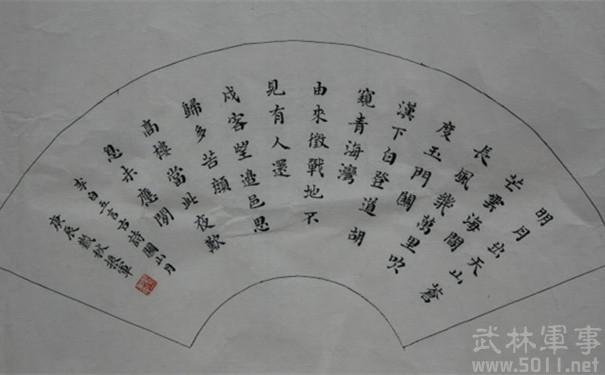 明月出天山蒼
芒雲海間
長風幾萬里吹
度玉門關
漢下白登道胡
窺青海灣
由來徵戰地不
見有人還
戍客望邊邑思
歸多苦顏
高樓當此夜歎
息未應閒
李白五言古詩關山月
庚辰 秋
武林軍事
www.5011.net